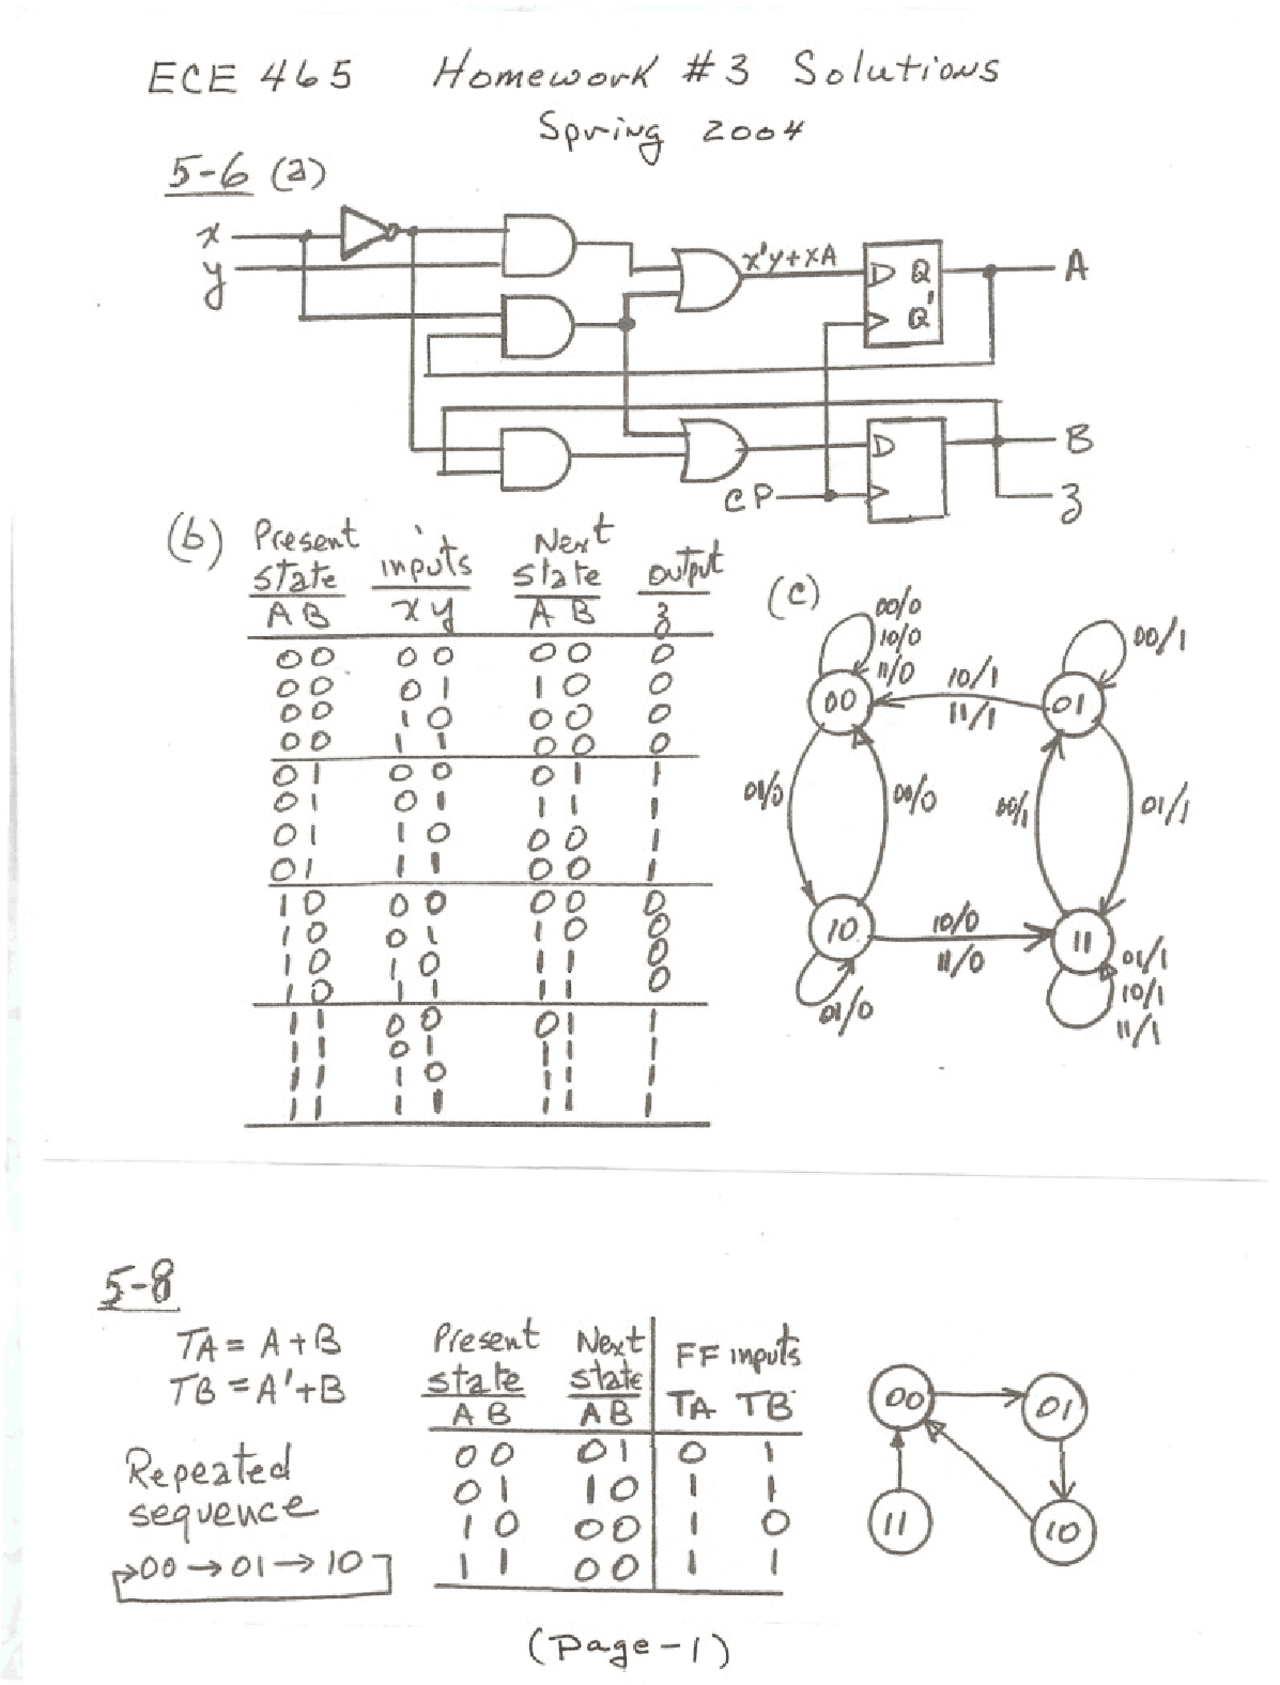 ECE 465 Homework #3 Solutions
Spring 2004
5-6 (a)
x
y
x'y+xA
D Q
Q'
A
D
B
CP
z
(b) Present state inputs Next state output
A B x y A B z
00 00 00 0
00 01 10 0
00 10 00 0
00 11 00 0
01 00 01 1
01 01 11 1
01 10 00 1
01 11 00 1
10 00 00 0
10 01 10 0
10 10 11 0
10 11 11 0
11 00 01 1
11 01 11 1
11 10 11 1
11 11 11 1
(c)
00/0
10/0
11/0
00/1
00
10/1
11/1
01
01/0
00/0
00/1
01/1
10
10/0
11/0
11
01/0
01/1
10/1
11/1
5-8
TA = A+B
TB = A'+B
Repeated
sequence
→00→01→10
Present Next FF inputs
state state
A B A B TA TB
00 01 0 1
01 10 1 1
10 00 1 0
11 00 1 1
00
01
11
10
(Page-1)